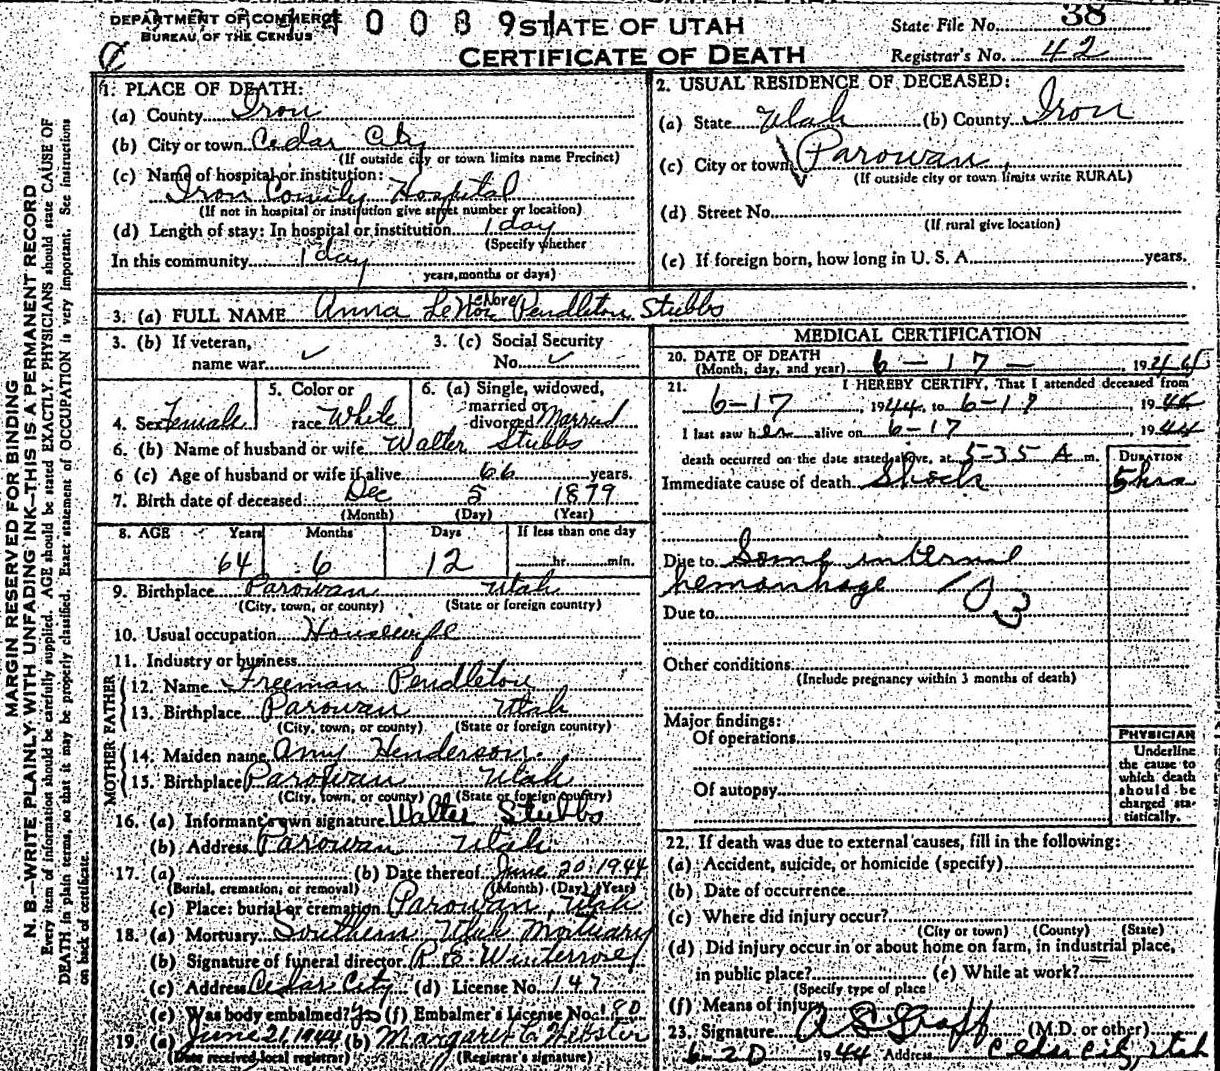 DEPARTMENT OF COMMERCE
BUREAU OF THE CENSUS
STATE OF UTAH
CERTIFICATE OF DEATH
State File No. 38
Registrar's No. 42
MARGIN RESERVED FOR BINDING
N. B.—WRITE PLAINLY WITH UNFADING INK—THIS IS A PERMANENT RECORD
Every item of information should be carefully supplied. AGE should be stated EXACTLY. PHYSICIANS should state CAUSE OF
DEATH in plain terms, so that it may be properly classified. Exact statement of OCCUPATION is very important. See instructions
on back of certificate.
1. PLACE OF DEATH:
(a) County Iron
(b) City or town Cedar City
(If outside city or town limits name Precinct)
(c) Name of hospital or institution:
Iron County Hospital
(If not in hospital or institution give street number or location)
(d) Length of stay: In hospital or institution 1 day
(Specify whether
In this community 1 day
years, months or days)
2. USUAL RESIDENCE OF DECEASED:
(a) State Utah (b) County Iron
(c) City or town Parowan
(If outside city or town limits write RURAL)
(d) Street No.
(If rural give location)
(e) If foreign born, how long in U. S. A. years.
3. (a) FULL NAME Anna LeNore Pendleton Stubbs
3. (b) If veteran,
name war
3. (c) Social Security
No.
4. Sex Female
5. Color or
race White
6. (a) Single, widowed,
married or
divorced Married
6. (b) Name of husband or wife Walter Stubbs
6 (c) Age of husband or wife if alive 66 years.
7. Birth date of deceased Dec 5 1879
(Month) (Day) (Year)
8. AGE Years Months Days If less than one day
64 6 12 hr. min.
9. Birthplace Parowan Utah
(City, town, or county) (State or foreign country)
10. Usual occupation Housewife
11. Industry or business
FATHER
12. Name Freeman Pendleton
13. Birthplace Parowan Utah
(City, town, or county) (State or foreign country)
MOTHER
14. Maiden name Amy Henderson
15. Birthplace Parowan Utah
(City, town, or county) (State or foreign country)
16. (a) Informant's own signature Walter Stubbs
(b) Address Parowan Utah
17. (a) (b) Date thereof June 20 1944
(Burial, cremation, or removal) (Month) (Day) (Year)
(c) Place: burial or cremation Parowan, Utah
18. (a) Mortuary Southern Utah Mortuary
(b) Signature of funeral director
(c) Address Cedar City (d) License No. 147
(e) Was body embalmed? yes (f) Embalmer's License No. 180
19. (a) June 21, 1944 (b) Margaret C. Webster
(Date received local registrar) (Registrar's signature)
MEDICAL CERTIFICATION
20. DATE OF DEATH
(Month, day, and year) 6-17- 1944
21. I HEREBY CERTIFY, That I attended deceased from
6-17, 1944 to 6-17 1944
I last saw her alive on 6-17 1944
death occurred on the date stated above, at 5-35 A m.
DURATION
Immediate cause of death Shock 5 hrs
Due to Some internal
hemorrhage
Due to
Other conditions
(Include pregnancy within 3 months of death)
Major findings:
Of operations
Of autopsy
PHYSICIAN
Underline
the cause to
which death
should be
charged sta-
tistically.
22. If death was due to external causes, fill in the following:
(a) Accident, suicide, or homicide (specify)
(b) Date of occurrence
(c) Where did injury occur?
(City or town) (County) (State)
(d) Did injury occur in or about home on farm, in industrial place,
in public place? (e) While at work?
(Specify type of place)
(f) Means of injury
23. Signature (M.D. or other)
6-20 1944 Address Cedar City, Utah